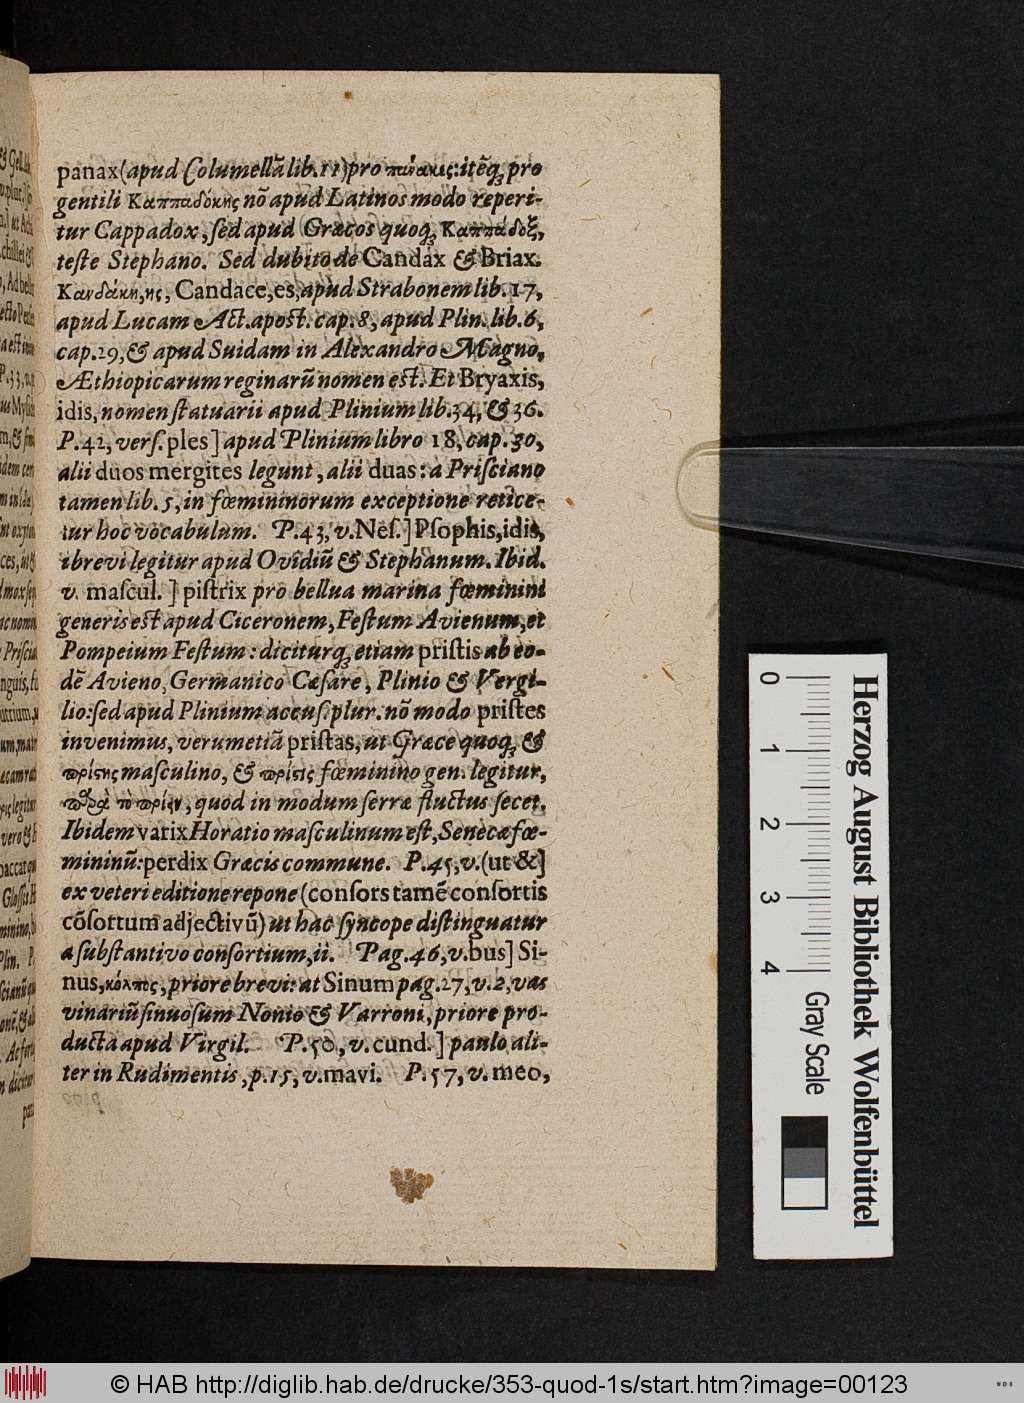 panax (apud Columellā lib. 11) pro πάνακες: itēq́; pro
gentili Καππαδόκης nō apud Latinos modo reperi-
tur Cappadox, ſed apud Græcos quoq́; Καππάδοξ,
teſte Stephano. Sed dubito de Candax & Briax.
Κανδάκη,ης, Candace,es, apud Strabonem lib. 17,
apud Lucam Act. apost. cap. 8, apud Plin. lib. 6,
cap. 29, & apud Suidam in Alexandro Magno,
Æthiopicarum reginarū nomen est. Et Bryaxis,
idis, nomen ſtatuarii apud Plinium lib. 34, & 36.
P. 42, verſ. ples] apud Plinium libro 18, cap. 30,
alii duos mergites legunt, alii duas: à Priſciano
tamen lib. 5, in fœmininorum exceptione retice-
tur hoc vocabulum. P. 43, v. Neſ.] Pſophis,idis,
ibrevi legitur apud Ovidiū & Stephanum. Ibid.
v. maſcul.] piſtrix pro bellua marina fœminini
generis est apud Ciceronem, Feſtum Avienum, et
Pompeium Feſtum: diciturq́; etiam priſtis ab eo-
dē Avieno, Germanico Cæſare, Plinio & Vergi-
lio: ſed apud Plinium accuſ. plur. nō modo priſtes
invenimus, verumetiā priſtas, ut Græce quoq́; &
πρίστης maſculino, & πρίστις fœminino gen. legitur,
παρὰ τὸ πρίειν, quod in modum ſerræ fluctus ſecet.
Ibidem varix Horatio maſculinum eſt, Senecæ fœ-
mininū: perdix Græcis commune. P. 45, v. (ut &]
ex veteri editione repone (conſors tamē conſortis
cōſortum adjectivū) ut hac ſyncope diſtinguatur
a ſubſtantivo conſortium, ii. Pag. 46, v. bus] Si-
nus, κόλπος, priore brevi: at Sinum pag. 27, v. 2, vas
vinariū ſinuoſum Nonio & Varroni, priore pro-
ducta apud Virgil. P. 50, v. cund.] paulo ali-
ter in Rudimentis, p. 15, v. mavi. P. 57, v. meo,
0 1 2 3 4
Herzog August Bibliothek Wolfenbüttel
Gray Scale
© HAB http://diglib.hab.de/drucke/353-quod-1s/start.htm?image=00123